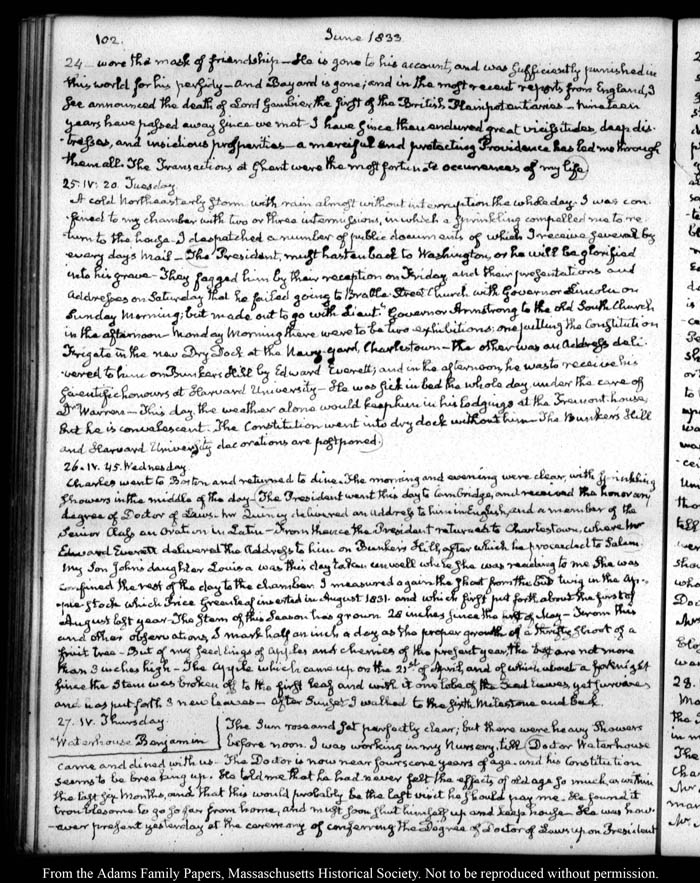 102.
June 1833
24 — wore the mask of friendship — He is gone to his account, and was sufficiently punished in
this world for his perfidy — And Bayard is gone; and in the most recent reports from England, I
see announced the death of Lord Gambier the first of the British Plenipotentiaries — nineteen
years have passed away since we met — I have since then endured great vicissitudes, deep dis-
tresses, and insidious prosperities — a merciful and protecting Providence has led me through
them all. The Transactions at Ghent were the most fortunate occurrences of my life.
25. IV: 20. Tuesday.
A cold Northeasterly Storm with rain almost without interruption the whole day. I was con-
fined to my chamber with two or three intermissions, in which a sprinkling compelled me to re-
turn to the house. I despatched a number of public documents of which I receive several by
every day's Mail — The President, must hasten back to Washington, or he will be glorified
into his grave — They fagged him by their reception on Friday, and their presentations and
Addresses on Saturday that he failed going to Brattle Street Church with Governor Lincoln on
Sunday Morning; but made out to go with Lieut. Governor Armstrong to the old South Church
in the afternoon — Monday Morning there were to be two exhibitions; one putting the Constitution
Frigate in the new Dry Dock at the Navy-yard, Charlestown — the other was an Address deli-
vered to him on Bunkers Hill by Edward Everett; and in the afternoon, he was to receive his
Scientific honours at Harvard University — He was sick in bed the whole day under the care of
Dr Warren — This day the weather alone would keep him in his lodgings at the Tremont-house,
But he is convalescent. The Constitution went into dry dock without him. The Bunkers Hill
and Harvard University decorations are postponed.
26. IV. 45. Wednesday.
Charles went to Boston and returned to dine. The morning and evening were clear, with sprinkling
showers in the middle of the day. The President went this day to Cambridge, and received the honorary
degree of Doctor of Laws. Mr Quincy delivered an Address to him in English, and a member of the
Senior Class an Oration in Latin — From thence the President returned to Charlestown, where Mr
Edward Everett delivered the Address to him on Bunkers Hill, after which he proceeded to Salem.
My Son John's daughter Louisa was this day taken unwell while she was reading to me. She was
confined the rest of the day to the chamber. I measured again the shoot from the bud twig in the Ap-
ple-stock which Price Greenleaf inserted in August 1831. and which first put forth about the first of
August last year — The Stem of this Season has grown 28 inches since the first of May — From this
and other observations, I mark half an inch a day as the proper growth of a thrifty shoot of a
fruit Tree — But of my seedlings of Apples and cherries of the present year, the best are not more
than 3 inches high — The Apple which came up on the 21st of April, and of which about a fortnight
since the Stem was broken off to the first leaf and with it one lobe of the Seed leaves, yet survives
and has put forth 3 new leaves — After Sunset I walked to the sixth Milestone and back.
27. IV. Thursday.
Waterhouse Benjamin
The Sun rose and set perfectly clear; but there were heavy showers
before noon. I was working in my Nursery, till Doctor Waterhouse
came and dined with us — The Doctor is now near fourscore years of age, and his Constitution
seems to be breaking up. He told me that he had never felt the effects of old age so much as within
the last six Months, and that this would probably be the last visit he should pay me. He found it
troublesome to go so far from home, and must soon shut himself up and keep house — He was how-
ever present yesterday at the ceremony of conferring the Degree of Doctor of Laws upon President
From the Adams Family Papers, Massachusetts Historical Society. Not to be reproduced without permission.